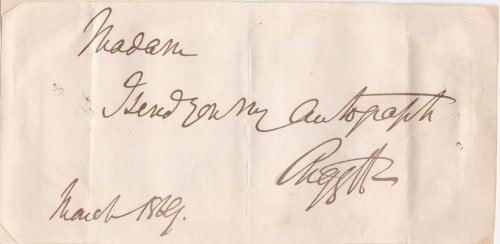 Madam
I send you my autograph
March 1869.